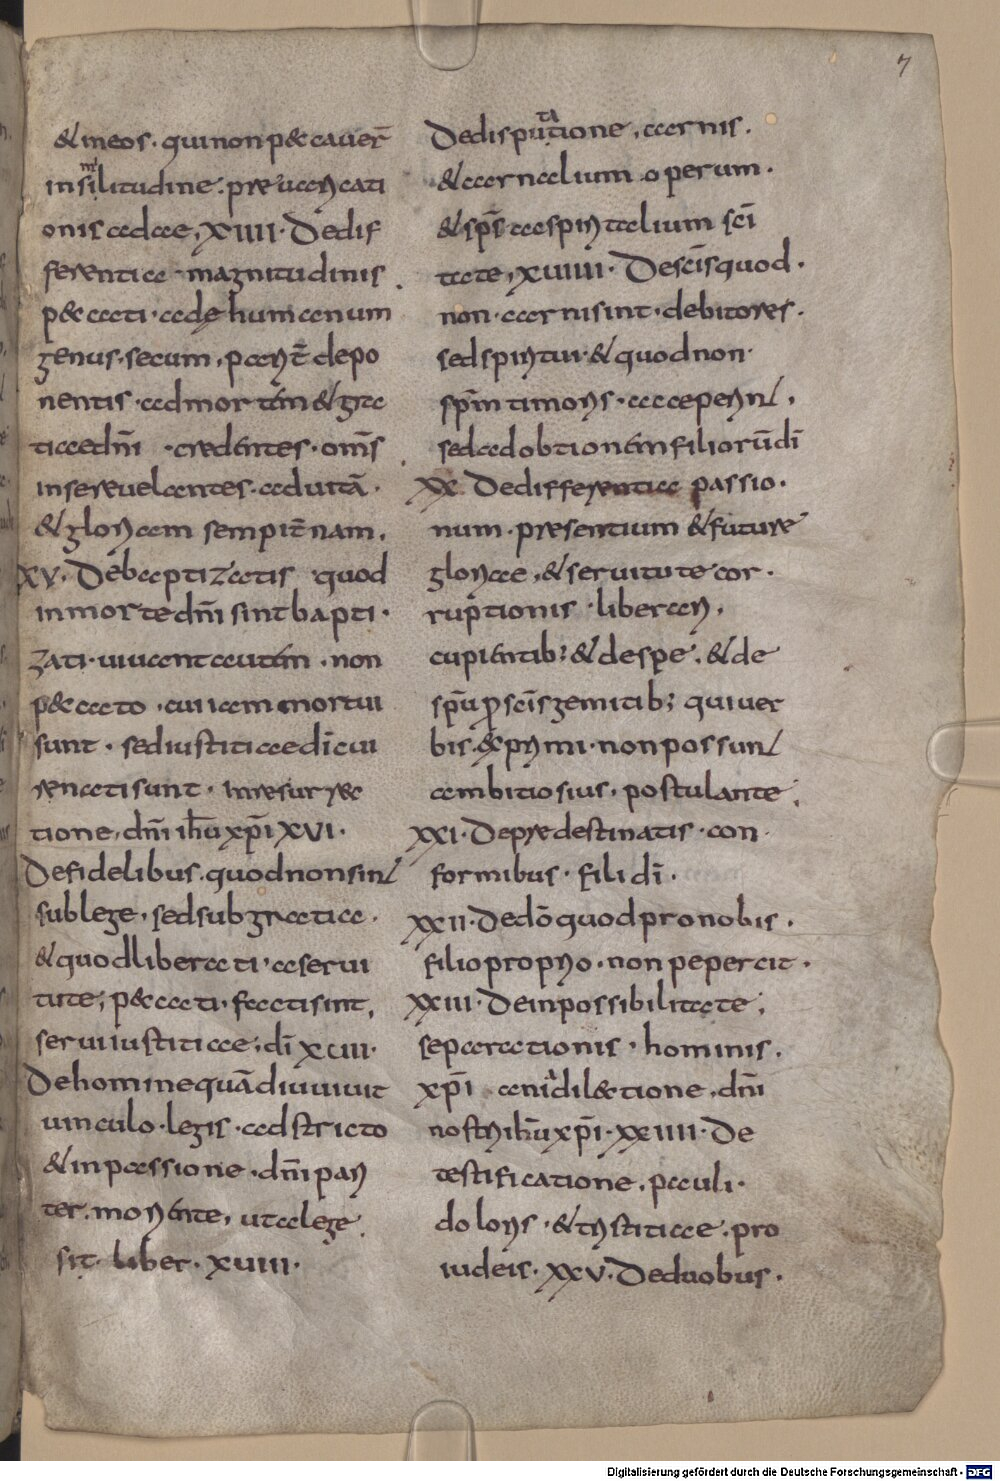 7
& ineos · quinonp&cauer̄
insimilitudine · preuaricati
onis adae, XIIII · Dedif
ferentia · magnitudinis
p&cati · adę humanum
genus · secum, pariter̄ depo
nentis · admortem & gra
tiaedn̄i · credentes · om̄s
inserevelantes · aduitā ·
& gloriam sempit̄nam,
XV · Debaptizatis quod
inmortedn̄i sintbapti ·
zati · uiuantautem · non
p&cato · cui iam mortui
sunt · sediustitiaedīcui
renatisunt · inresurre
tione, dn̄i ih̄u xp̄i XVI ·
Defidelibus · quodnonsint
sublege, sedsubgratia ·
& quodliberati · aserui
tute, p&cati · factisint,
seruiiustitiae, dī XVII ·
Dehominequādiuuiuit
uinculo · legis · adstricto
& inpassione · dn̄i pari
ter · moriente, utalege
sit · liber · XVIII ·
Dedisputatione, carnis ·
& carnalium operum ·
& sp̄s aespiritalium sc̄i
tate, XVIIII · Desc̄isquod ·
non · carnisint · debitores ·
sedspiritui · & quodnon ·
sp̄m timoris · acceperint,
sedadobtionemfiliorūdī
XX Dedifferentia passio ·
num · presentium & future
gloriae, & seruitute cor ·
ruptionis · liberari,
cupientib; & despe · & de
sp̄u p̄ sc̄isgemitib; quiuer
bis · exprimi · nonpossunt
ambitiosius · postulante,
XXI · Depredestinatis · con ·
formibus · fili dī ·
XXII · Dedō quodpronobis ·
filioproprio · nonpepercit ·
XXIII · Deinpossibilitate,
separationis · hominis ·
xp̄i aniadil&tione, dn̄i
nostriih̄u xp̄i · XXIIII · De
testificatione, pauli ·
doloris · & tristitiae · pro
iudeis · XXV · Deduobus ·
Digitalisierung gefördert durch die Deutsche Forschungsgemeinschaft - DFG